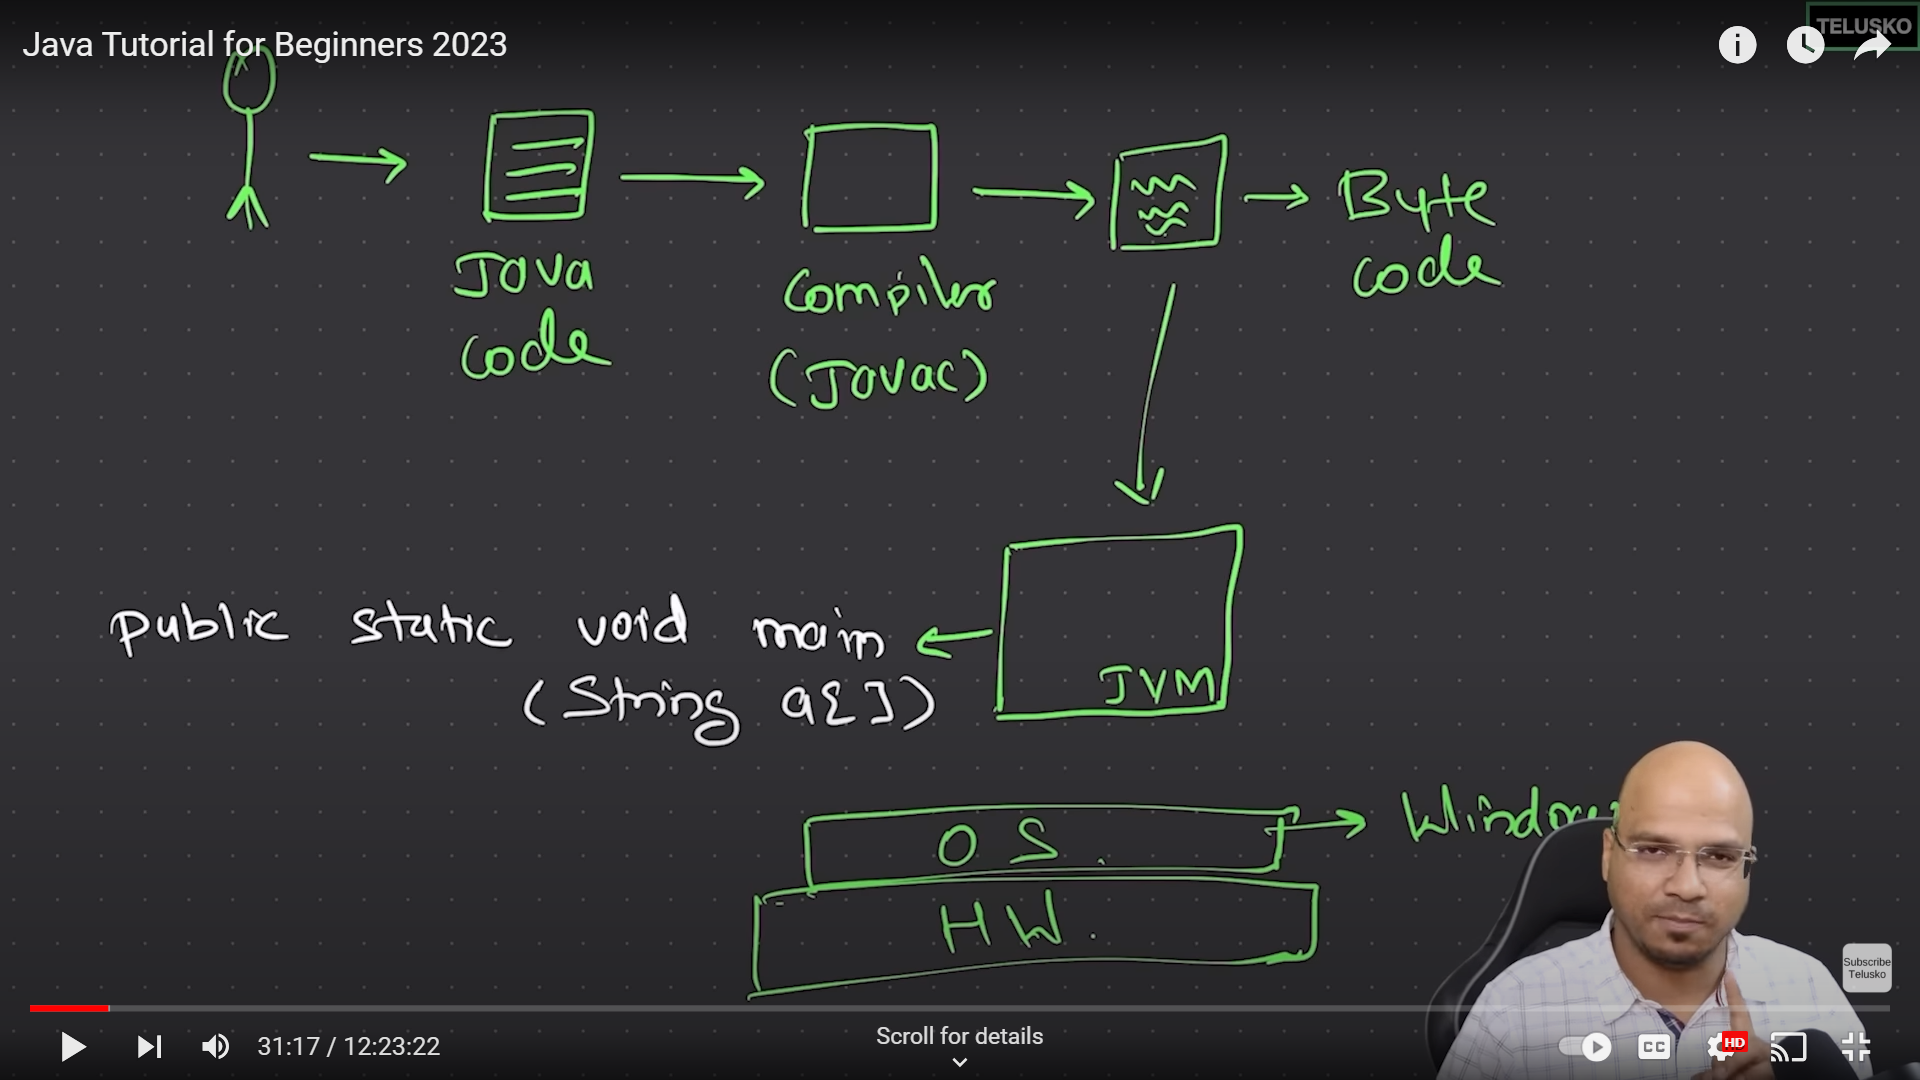 Java Tutorial for Beginners 2023
TELUSKO
Java
code
Byte
code
Compiler
(Javac)
public static void main
(String a[])
JVM
OS.
HW.
Subscribe
Telusko
31:17 / 12:23:22
Scroll for details
CC
HD